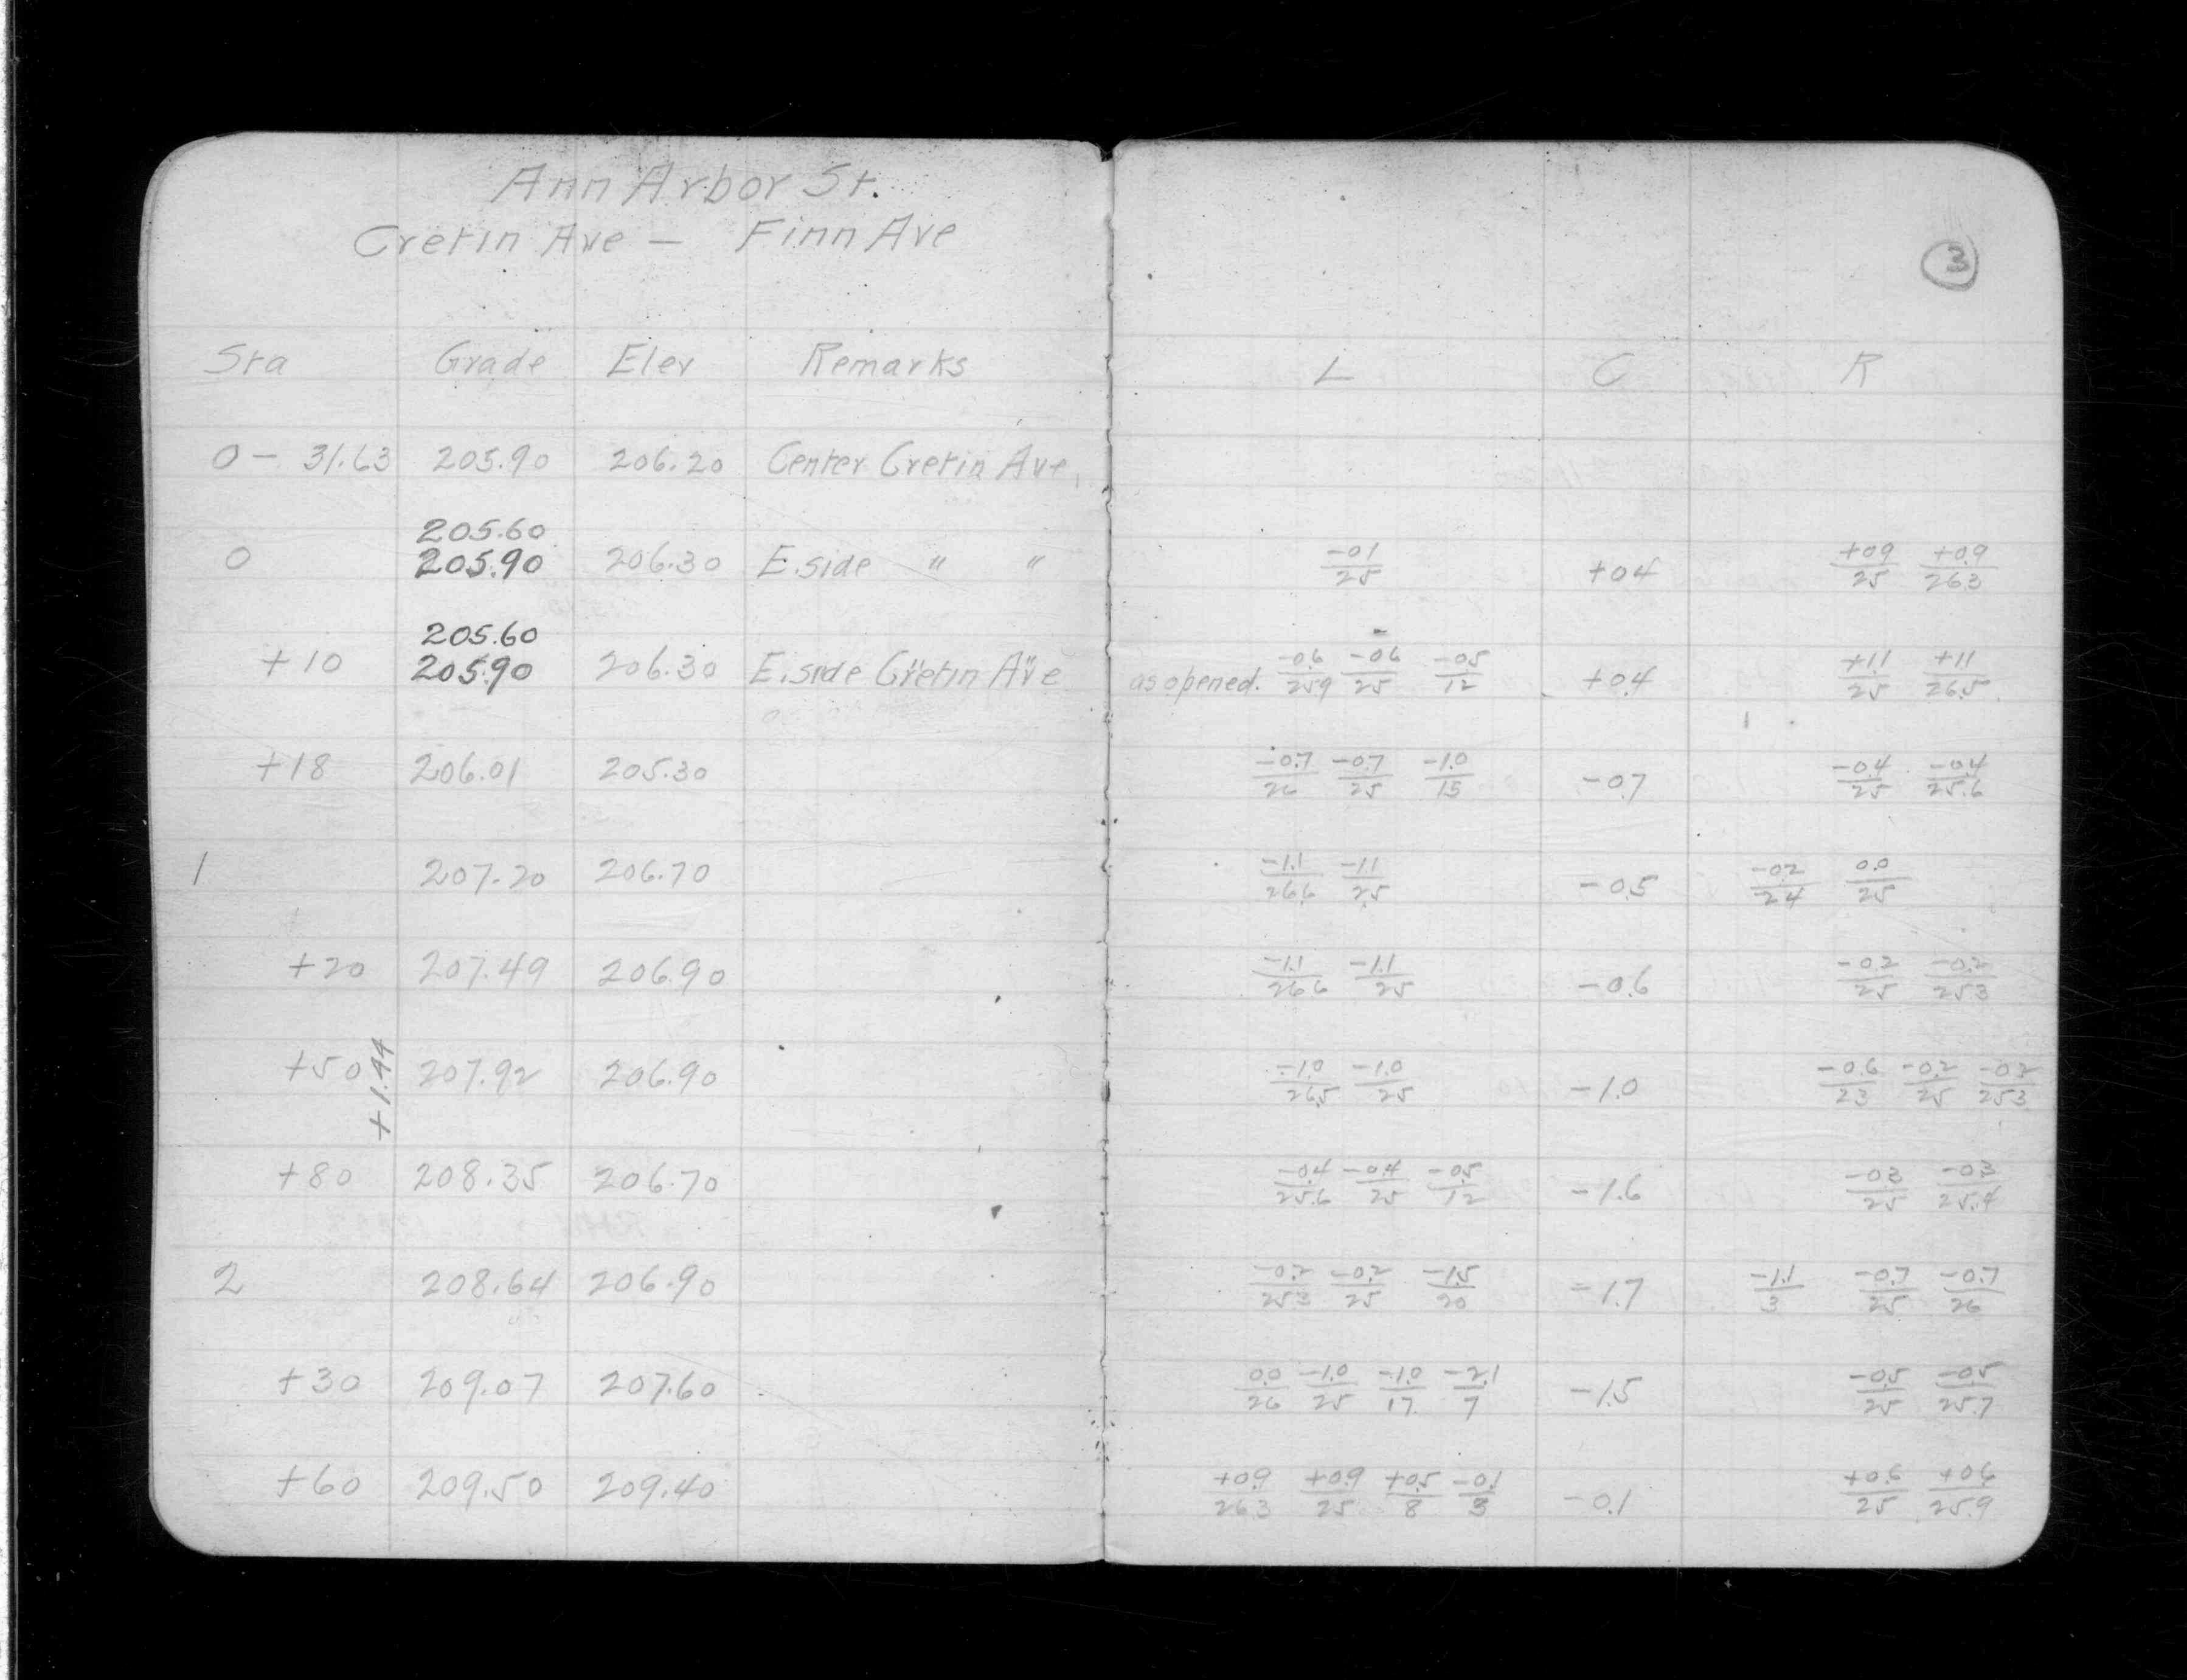 Ann Arbor St.
Cretin Ave — Finn Ave
3
Sta Grade Elev Remarks L C R
0 - 31.63 205.90 206.20 Center Cretin Ave.
205.60
0 205.90 206.30 E.side " " -0.1/25 +0.4 +0.9/25 +0.9/26.3
205.60
+10 205.90 206.30 E.side Cretin Ave as opened. -0.6/25.9 -0.6/25 -0.5/12 +0.4 +1.1/25 +1.1/26.5
+18 206.01 205.30 -0.7/26 -0.7/25 -1.0/15 -0.7 -0.4/25 -0.4/25.6
1 207.20 206.70 -1.1/26.6 -1.1/25 -0.5 -0.2/24 0.0/25
+20 207.49 206.90 -1.1/26.6 -1.1/25 -0.6 -0.2/25 -0.2/25.3
+50 207.92 206.90 -1.0/26.5 -1.0/25 -1.0 -0.6/23 -0.2/25 -0.2/25.3
+1.44
+80 208.35 206.70 -0.4/25.6 -0.4/25 -0.5/12 -1.6 -0.3/25 -0.3/25.4
2 208.64 206.90 -0.2/25.3 -0.2/25 -1.5/20 -1.7 -1.1/3 -0.7/25 -0.7/26
+30 209.07 207.60 0.0/26 -1.0/25 -1.0/17 -2.1/7 -1.5 -0.5/25 -0.5/25.7
+60 209.50 209.40 +0.9/26.3 +0.9/25 +0.5/8 -0.1/3 -0.1 +0.6/25 +0.6/25.9